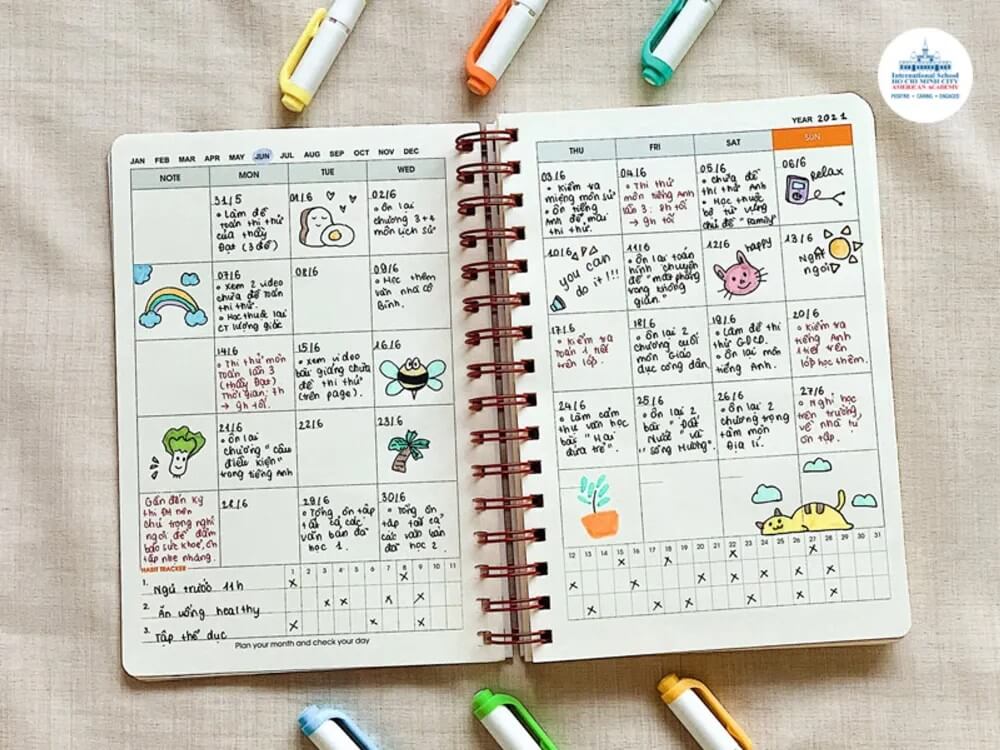 International School
HO CHI MINH CITY
AMERICAN ACADEMY
POSITIVE • CARING • ENGAGED
JAN FEB MAR APR MAY JUN JUL AUG SEP OCT NOV DEC
NOTE MON TUE WED
31/5
• Làm đề
Toán thi thử
của thầy
Đạt (3 đề)
01/6
02/6
• Ôn lại
chương 3+4
môn lịch sử
07/6
• Xem 2 video
chữa đề Toán
thi thử.
• Học thuộc lại
CT lượng giác
08/6
09/6
• Học thêm
văn nhà cô
Bình.
14/6
• Thi thử môn
Toán lần 3
(thầy Đạt)
Thời gian: 7h
→ 9h tối.
15/6
• Xem video
bài giảng chữa
đề thi thử
(trên page).
16/6
21/6
• Ôn lại
chương "câu
điều kiện"
trong tiếng Anh
22/6
23/6
Gần đến kỳ
thi ĐH nên
chú trọng nghỉ
ngơi, để đảm
bảo sức khoẻ, ôn
tập nhẹ nhàng.
28/6
29/6
• Tổng ôn tập
tất cả các
văn bản đã
học 1.
30/6
• Tổng ôn
tập tất cả
các văn bản
đã học 2.
HABIT TRACKER
1 2 3 4 5 6 7 8 9 10 11
1. Ngủ trước 11h
2. Ăn uống healthy
3. Tập thể dục
Plan your month and check your day
YEAR 2021
THU FRI SAT SUN
03/6
• Kiểm tra
miệng môn sử
• Ôn tiếng
Anh để mai
thi thử
04/6
• Thi thử
môn tiếng Anh
lần 3: 8h tối
→ 9h tối
05/6
• Chữa đề
thi thử Anh
• Học thuộc
bộ từ vựng
chủ đề "Family"
06/6
relax
10/6
you can
do it!!!
11/6
• Ôn lại toán
hình chuyên
đề "mặt phẳng
trong không
gian."
12/6
happy
13/6
Nghỉ
ngơi
17/6
• Kiểm tra
Toán 1 tiết
trên lớp.
18/6
• Ôn lại 2
chương cuối
môn Giáo
dục công dân.
19/6
• Làm đề thi
thử GDCD.
• Ôn lại môn
tiếng Anh.
20/6
• Kiểm tra
tiếng Anh
1 tiết trên
lớp học thêm.
24/6
• Làm cảm
thụ văn học
bài "Hai
đứa trẻ".
25/6
• Ôn lại 2
bài "Đất
Nước" và
"Sông Hương".
26/6
• Ôn lại 2
chương trọng
tâm môn
Địa lí.
27/6
• Nghỉ học
trên trường,
về nhà tự
ôn tập.
12 13 14 15 16 17 18 19 20 21 22 23 24 25 26 27 28 29 30 31